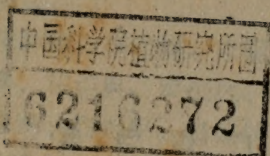 中国科学院植物研究所图
6216272